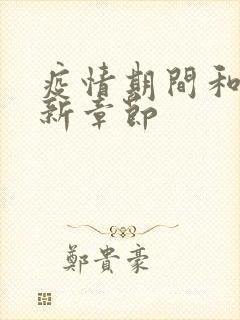 疫情期間和
新章節
鄭貴豪